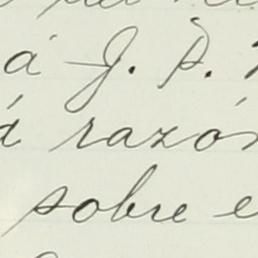 á J. P.
á razón
sobre e